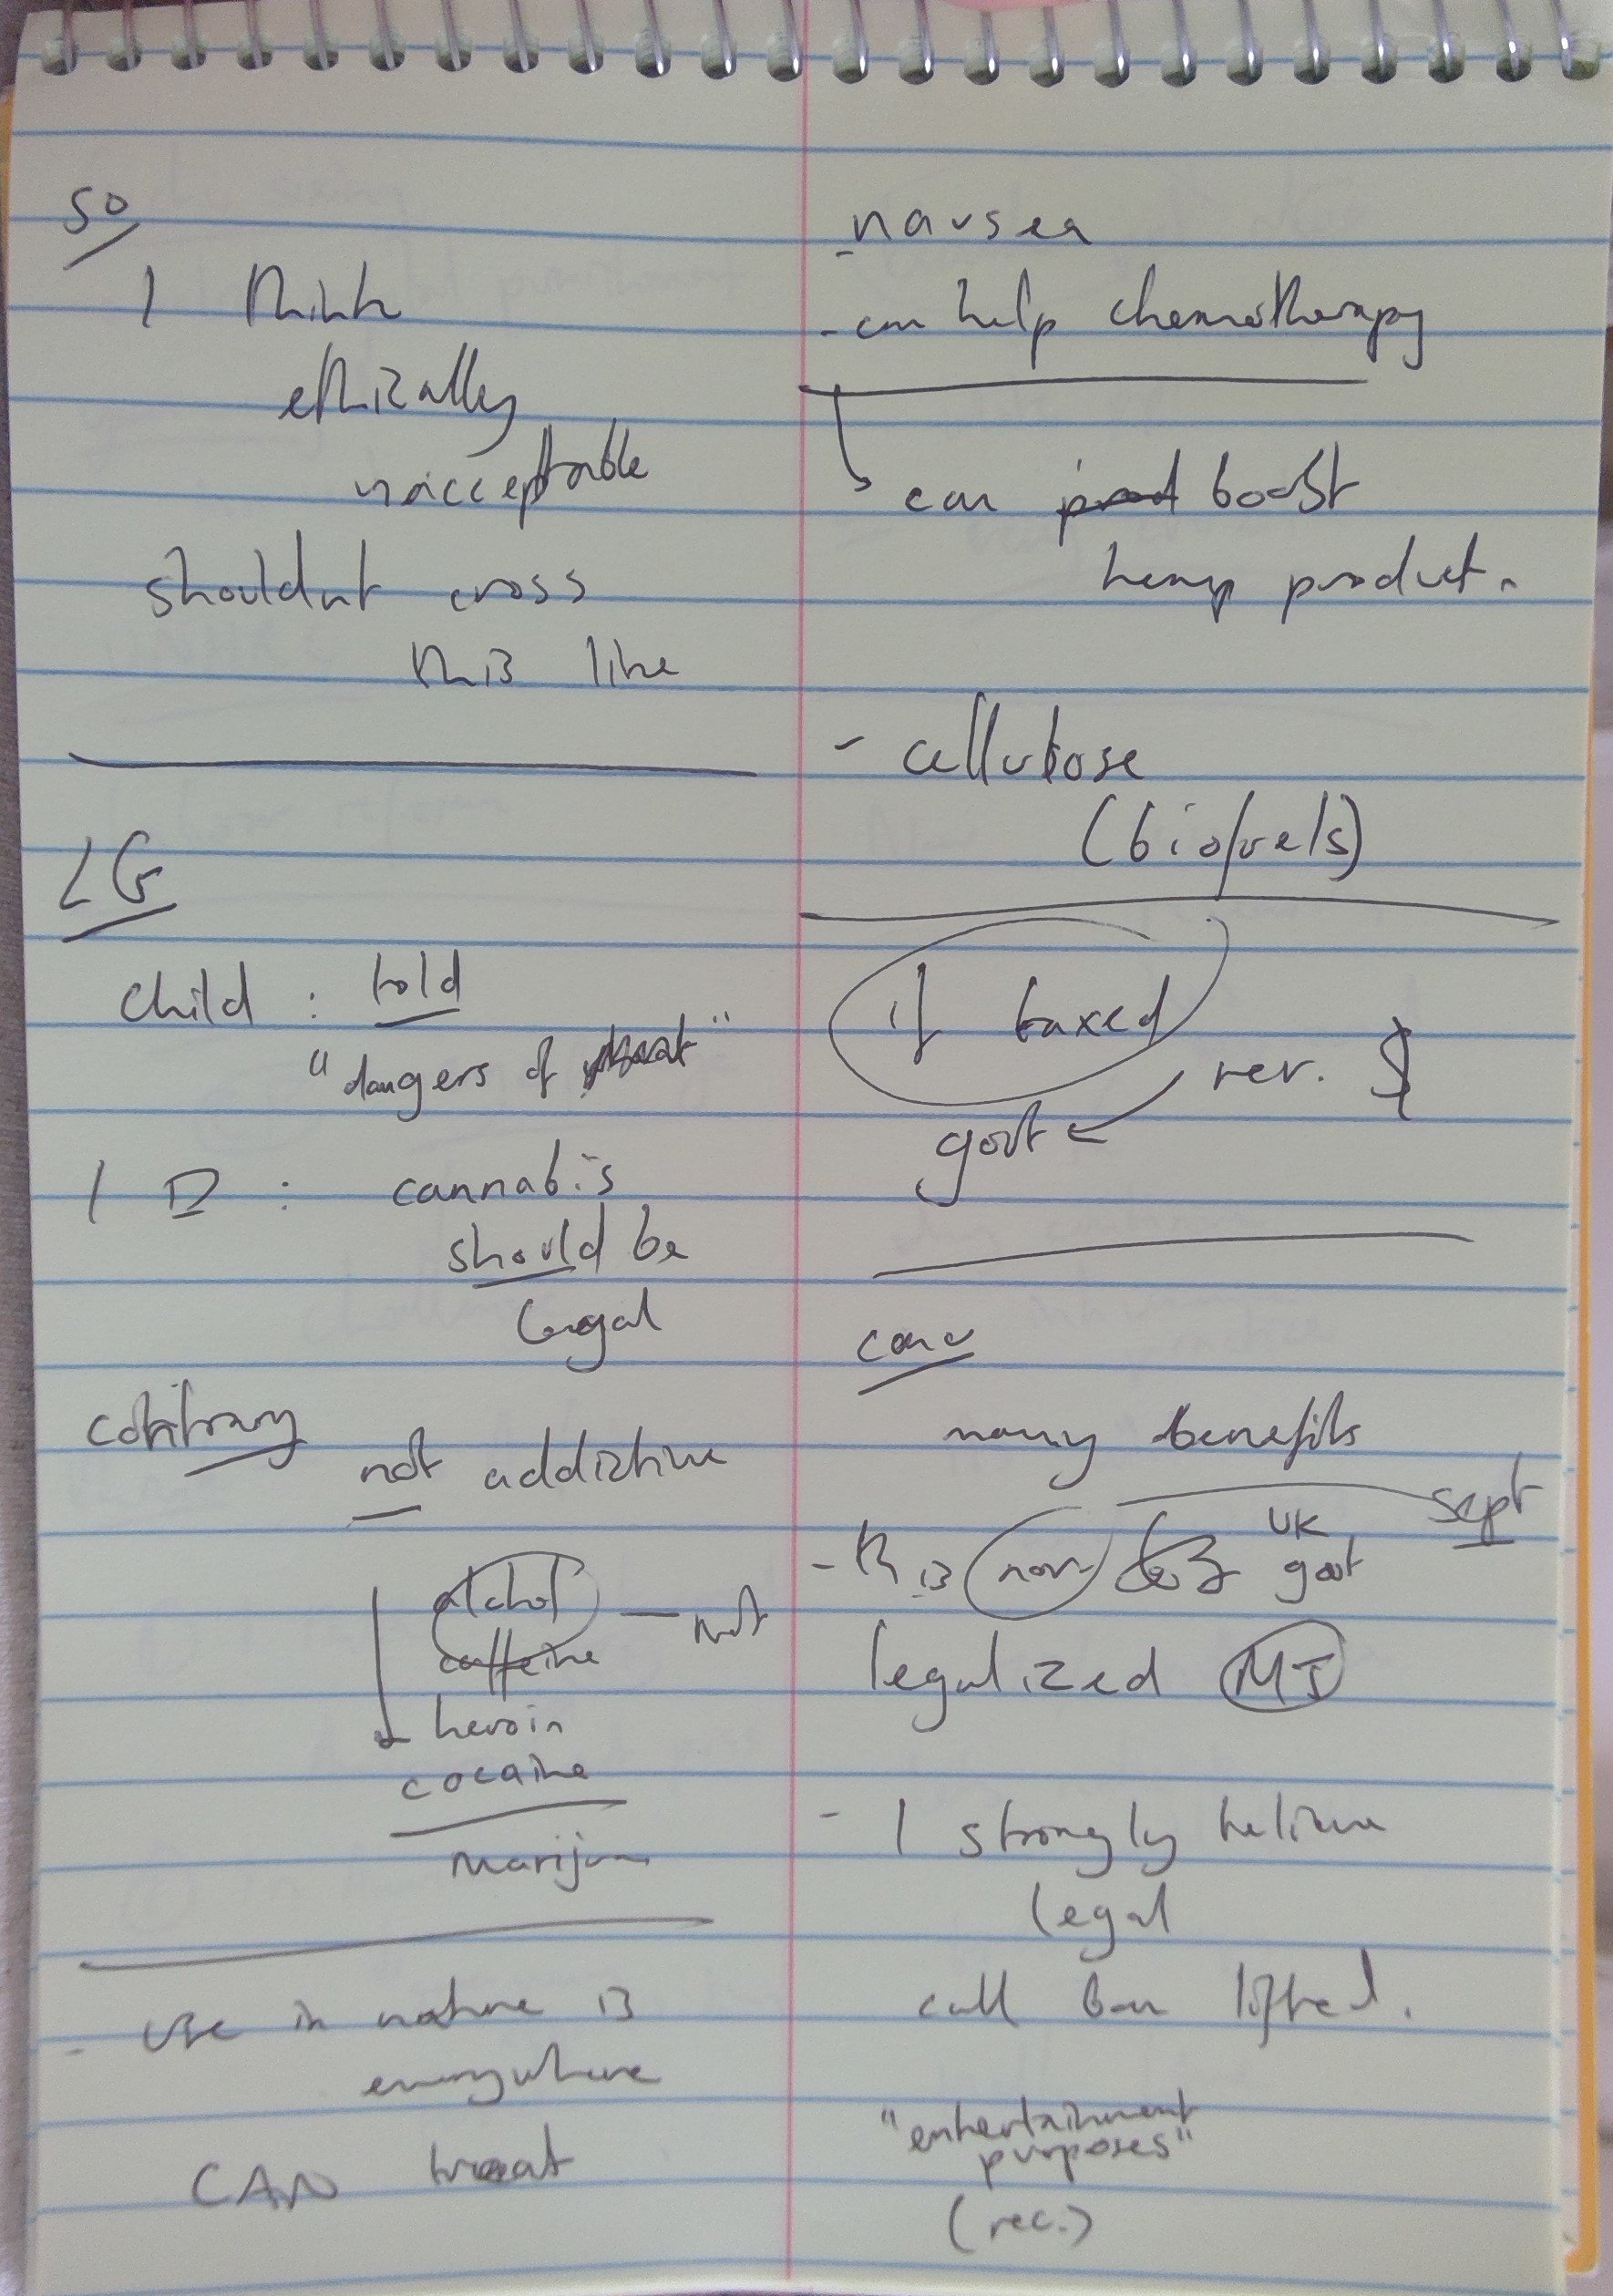 so
I think
ethically
unacceptable
shouldnt cross
this line
LG
Child : told
"dangers of "
I D : cannabis
should be
legal
contrary
not addictive
alchol — not
caffeine
heroin
cocaine
use in nature is
everywhere
CAN treat
- nausea
- can help chemotherapy
can prod boost
hemp product.
- cellulose
(biofuels)
if taxed
rev. $
govt
conc
many benefits
sept
UK
- this nov govt
legalized MJ
- I strongly believe
legal
call ban lifted.
"entertainment
purposes"
(rec.)